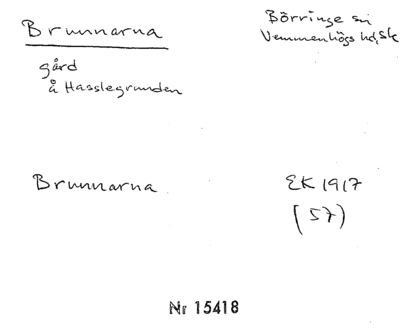 Brunnarna
Börringe sn
Vemmenhögs hd, Sk
gård
å Hasslegrunden
Brunnarna
EK 1917
(57)
Nr 15418